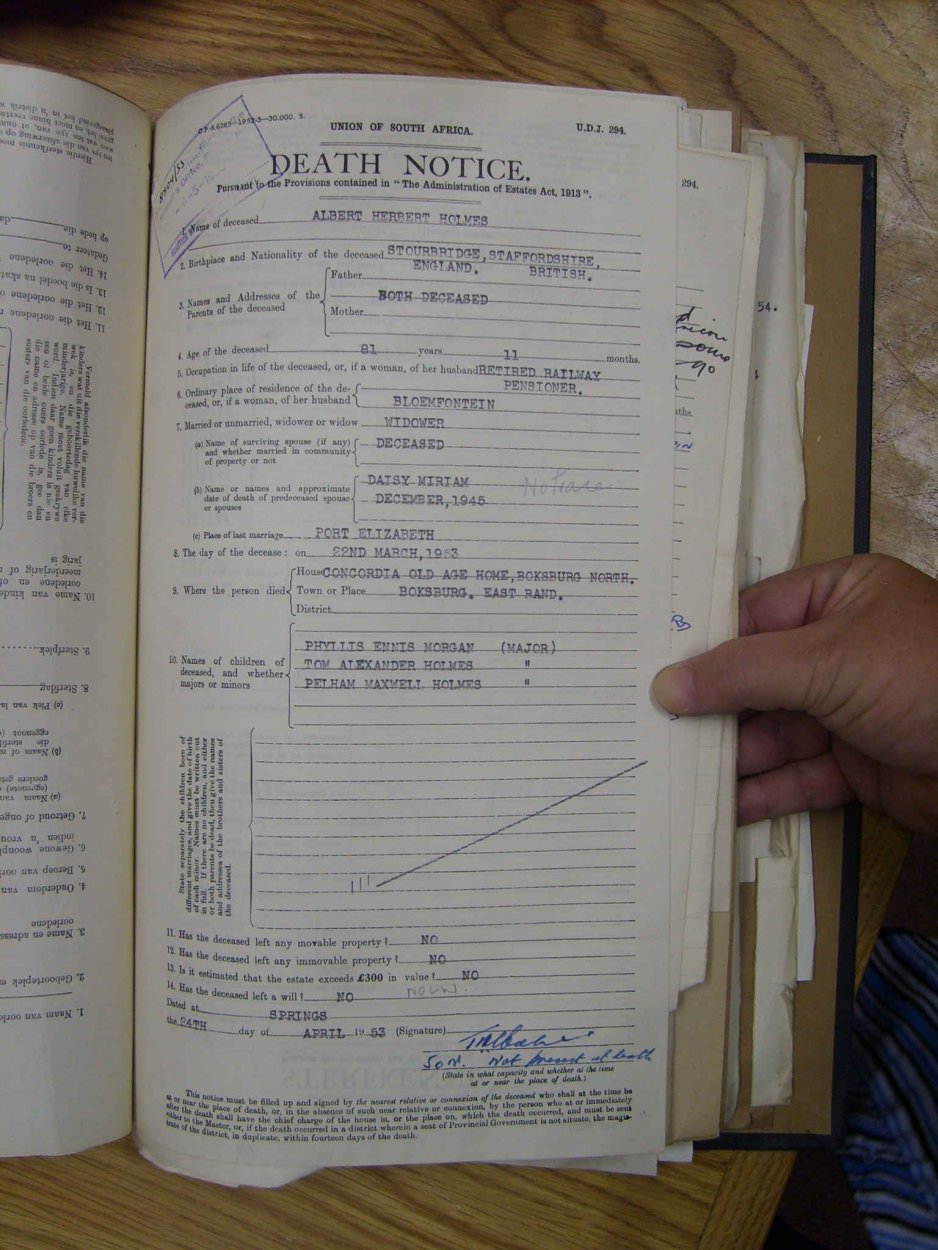 D.P.S.6265—1952-3—30,000. S.
UNION OF SOUTH AFRICA.
U.D.J. 294.
DEATH NOTICE.
Pursuant to the Provisions contained in "The Administration of Estates Act, 1913".
1. Name of deceased ALBERT HERBERT HOLMES
2. Birthplace and Nationality of the deceased STOURBRIDGE, STAFFORDSHIRE,
ENGLAND. BRITISH.
3. Names and Addresses of the Parents of the deceased
Father
BOTH DECEASED
Mother
4. Age of the deceased 81 years 11 months.
5. Occupation in life of the deceased, or, if a woman, of her husband RETIRED RAILWAY
PENSIONER.
6. Ordinary place of residence of the de-
ceased, or, if a woman, of her husband BLOEMFONTEIN
7. Married or unmarried, widower or widow WIDOWER
(a) Name of surviving spouse (if any)
and whether married in community
of property or not
DECEASED
(b) Name or names and approximate
date of death of predeceased spouse
or spouses
DAISY MIRIAM
DECEMBER, 1945
(c) Place of last marriage PORT ELIZABETH
8. The day of the decease: on 22ND MARCH, 1953
9. Where the person died
House CONCORDIA OLD AGE HOME, BOKSBURG NORTH.
Town or Place BOKSBURG. EAST RAND.
District
10. Names of children of
deceased, and whether
majors or minors
PHYLLIS ENNIS MORGAN (MAJOR)
TOM ALEXANDER HOLMES "
PELHAM MAXWELL HOLMES "
State separately the children born of
different marriages, and give the date of birth
of each minor. Names must be written out
in full. If there are no children, and either
or both parents be dead, then give the names
and addresses of the brothers and sisters of
the deceased.
11. Has the deceased left any movable property? NO
12. Has the deceased left any immovable property? NO
13. Is it estimated that the estate exceeds £300 in value? NO
14. Has the deceased left a will? NO
Dated at SPRINGS
the 24TH day of APRIL 19 53 (Signature)
Son. Not present at death
(State in what capacity and whether at the time
at or near the place of death.)
This notice must be filled up and signed by the nearest relative or connexion of the deceased who shall at the time be
at or near the place of death, or, in the absence of such near relative or connexion, by the person who at or immediately
after the death shall have the chief charge of the house in, or the place on, which the death occurred, and must be sent
either to the Master, or, if the death occurred in a district wherein a seat of Provincial Government is not situate, the magis-
trate of the district, in duplicate, within fourteen days of the death.
294.
54.